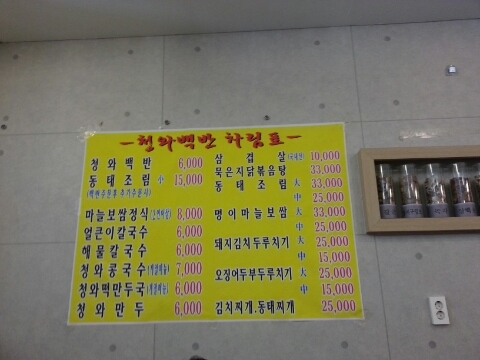 -청와백반 차림표-
청와백반 6,000
동태조림 小 15,000
(백반주문후 추가주문시)
마늘보쌈정식 8,000
얼큰이칼국수 6,000
해물칼국수 6,000
청와콩국수(계절메뉴) 7,000
청와떡만두국(계절메뉴) 6,000
청와만두 6,000
삼겹살(국내산) 10,000
묵은지닭볶음탕 33,000
동태조림 大 33,000
中 25,000
명이마늘보쌈 大 33,000
中 25,000
돼지김치두루치기 大 25,000
中 15,000
오징어두부두루치기 大 25,000
中 15,000
김치찌개.동태찌개 25,000